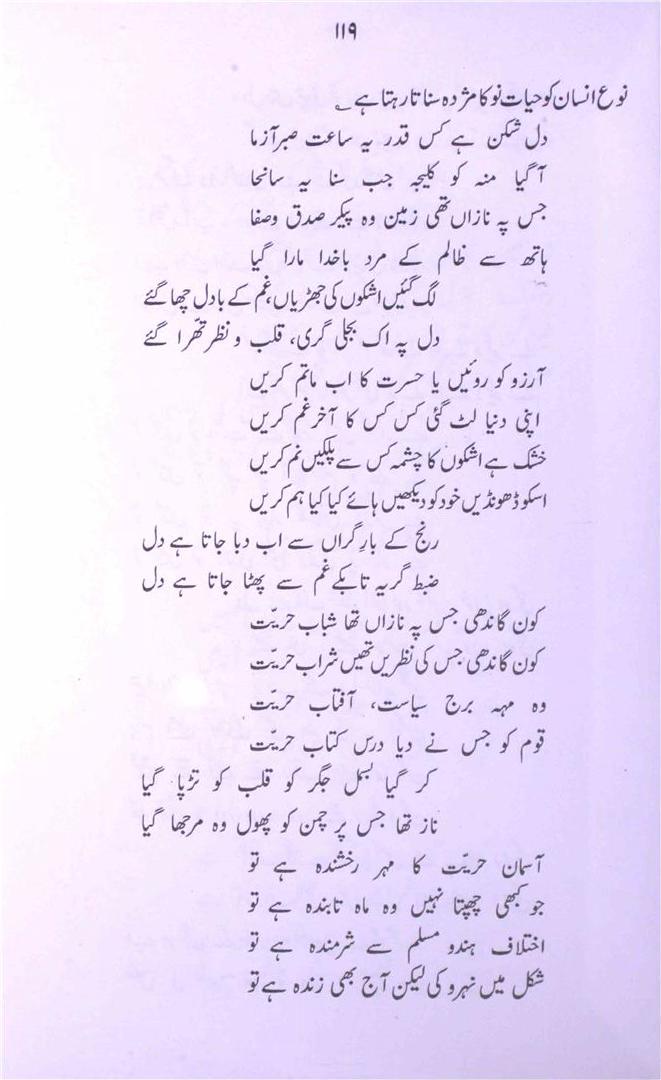 ۱۱۹
نوع انسان کو حیات نو کا مژدہ سناتا رہتا ہے ؎
دل شکن ہے کس قدر یہ ساعت صبر آزما
آ گیا منہ کو کلیجہ جب سنا یہ سانحا
جس پہ نازاں تھی زمین وہ پیکر صدق وصفا
ہاتھ سے ظالم کے مرد باخدا مارا گیا
لگ گئیں اشکوں کی جھڑیاں، غم کے بادل چھا گئے
دل پہ اک بجلی گری، قلب و نظر تھرّا گئے
آرزو کو روئیں یا حسرت کا اب ماتم کریں
اپنی دنیا لٹ گئی کس کس کا آخر غم کریں
خشک ہے اشکوں کا چشمہ کس سے پلکیں نم کریں
اسکو ڈھونڈیں خود کو دیکھیں ہائے کیا کیا ہم کریں
رنج کے بارِ گراں سے اب دبا جاتا ہے دل
ضبط گریہ تابکے غم سے پھٹا جاتا ہے دل
کون گاندھی جس پہ نازاں تھا شباب حریّت
کون گاندھی جس کی نظریں تھیں شراب حریّت
وہ مہہ برج سیاست، آفتاب حریّت
قوم کو جس نے دیا درس کتاب حریّت
کر گیا بسمل جگر کو قلب کو تڑپا گیا
ناز تھا جس پر چمن کو پھول وہ مرجھا گیا
آسمان حریّت کا مہر رخشندہ ہے تو
جو کبھی چھپتا نہیں وہ ماہ تابندہ ہے تو
اختلاف ہندو مسلم سے شرمندہ ہے تو
شکل میں نہرو کی لیکن آج بھی زندہ ہے تو